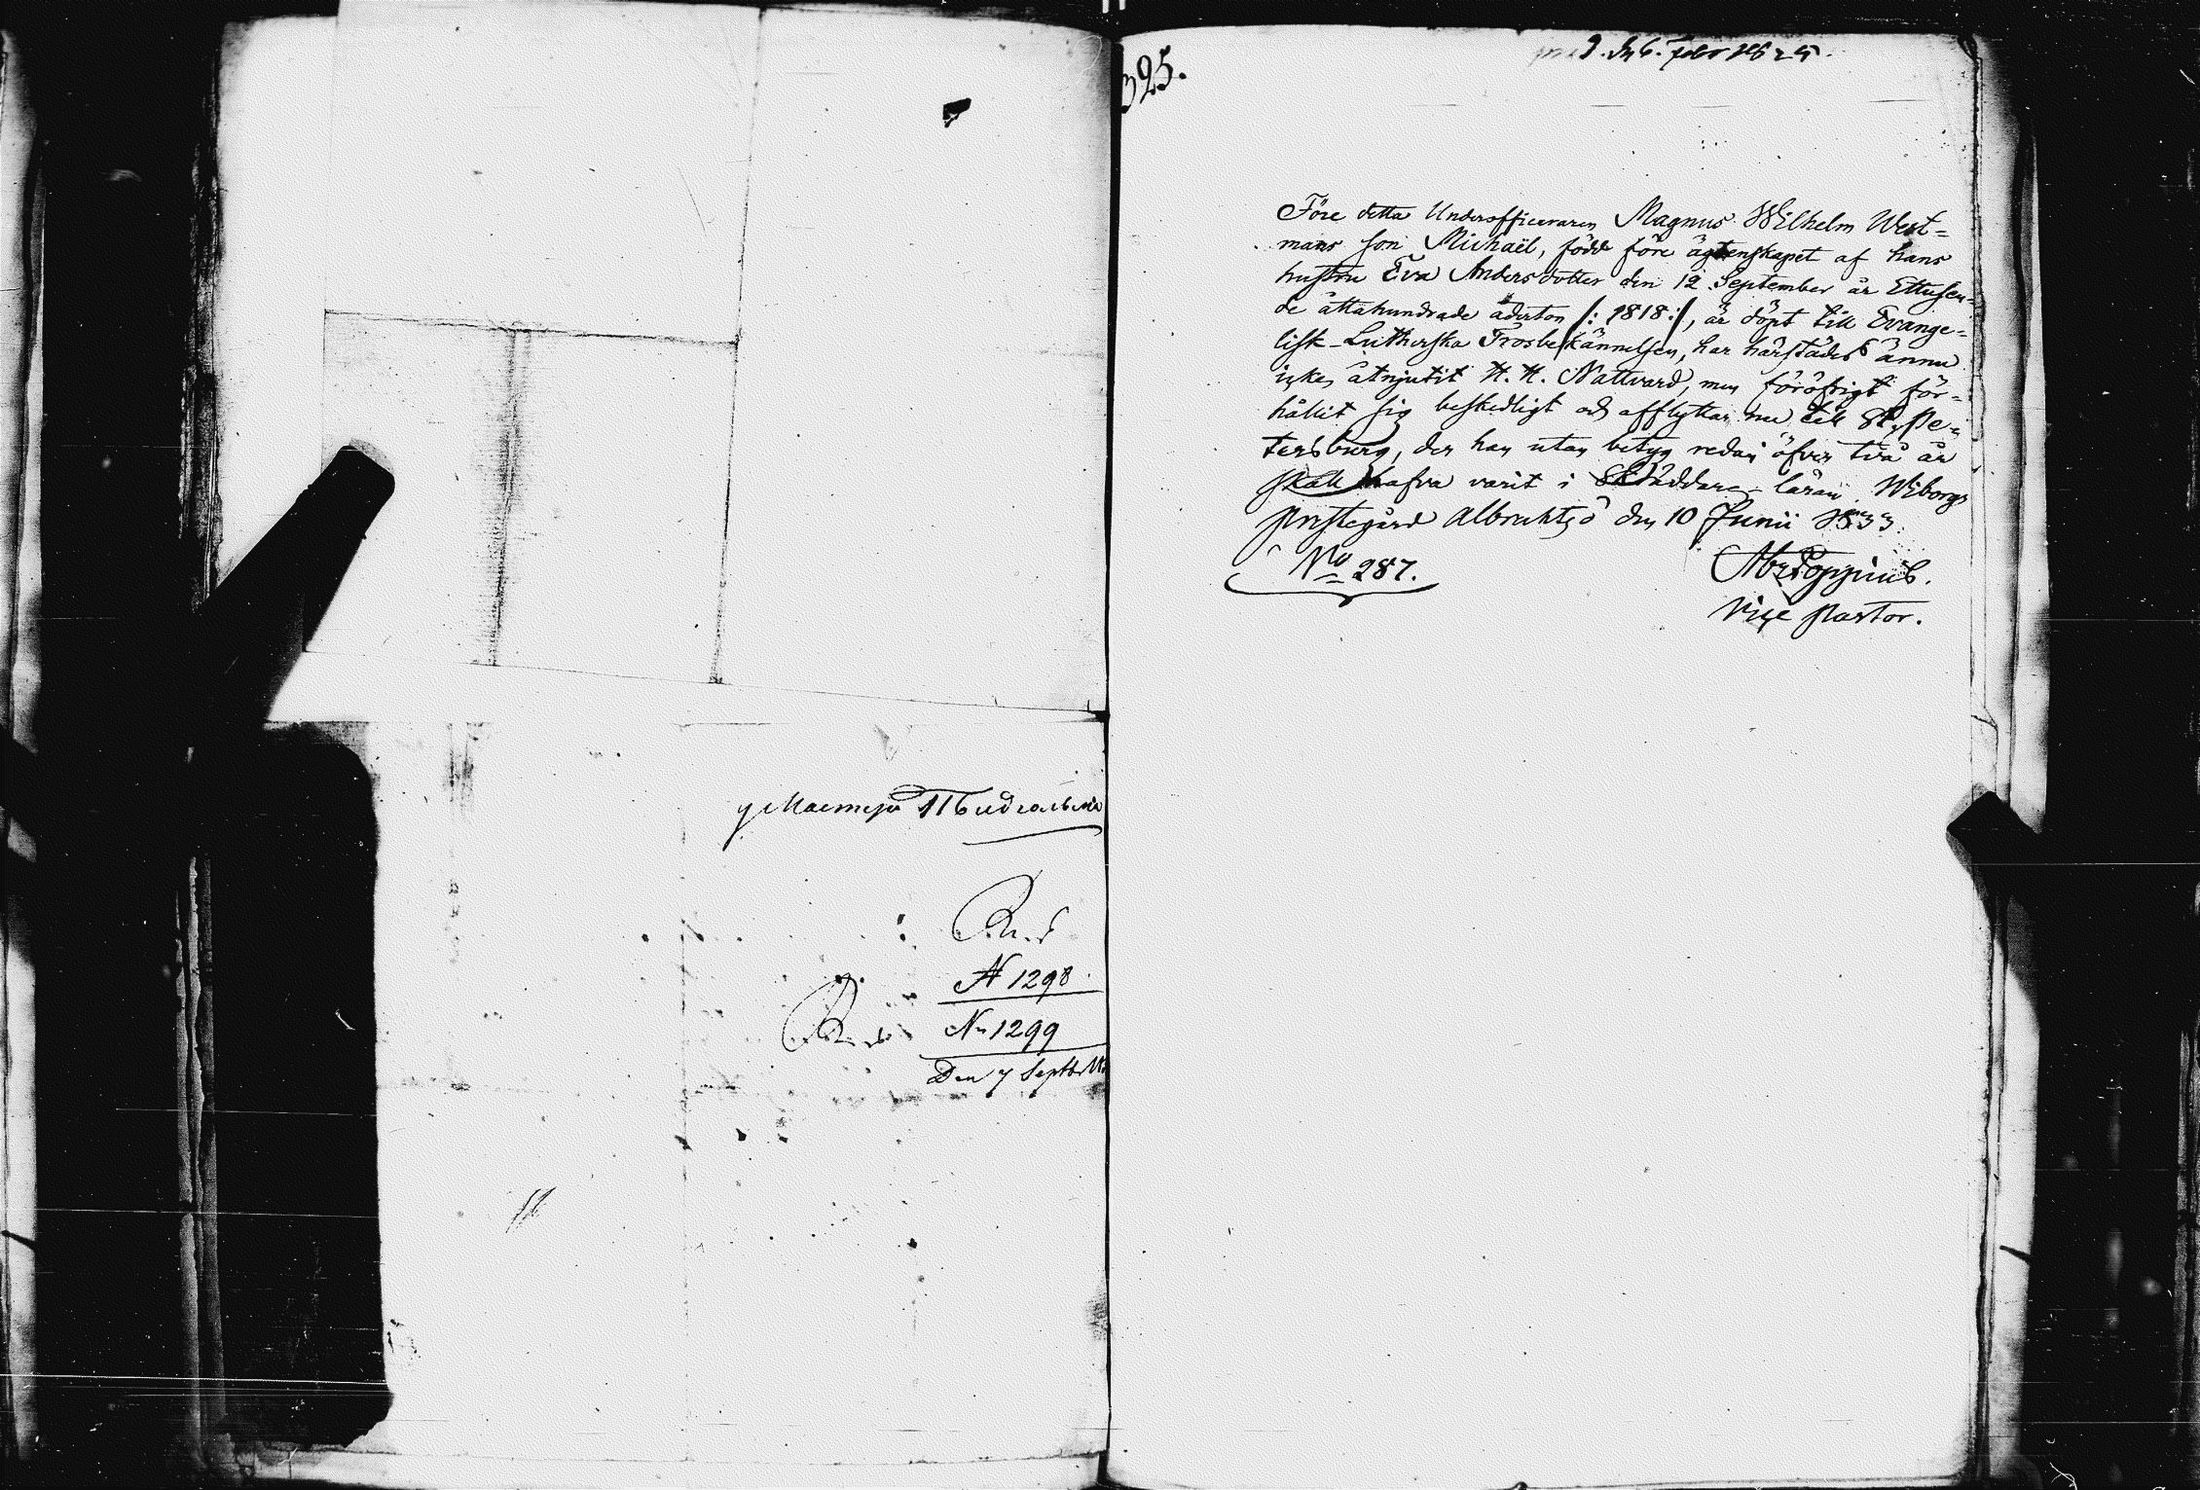 у Мастера
N 1298.
No 1299
Den 7 Septbr
325.
Febr
Före detta Underofficeraren Magnus Wilhelm West=
mans son Michaël, född före ägtenskapet af hans
hustru Eva Andersdotter den 12 September år Ettusen=
de åttahundrade aderton /: 1818 :/, är döpt till Evange=
lisk-Lutherska Trosbekännelsen, har härstädes ännu
icke åtnjutit H. H. Nattvard, men föröfrigt för=
hållit sig beskedligt och afflyttar nu till St. Pe=
tersburg, der han utan betyg redan öfver två år
skall hafva varit i Skräddare-läran. Wiborgs
prestegård Albrektsö den 10 Junii 1833.
No 287.
Vice Pastor.